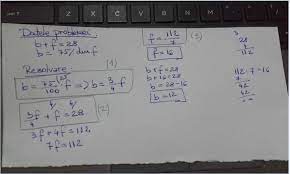 Datele problemei
b + f = 28
b = 75% din f
Rezolvare
(1)
b = 75/100 f => b = 3/4 f
3/4 f + f = 28
(2)
3f + 4f = 112
7f = 112
f = 112/7
(3)
f = 16
b + f = 28
b + 16 = 28
b = 28 - 16
b = 12
28
112
112 : 7 = 16
7
42
42